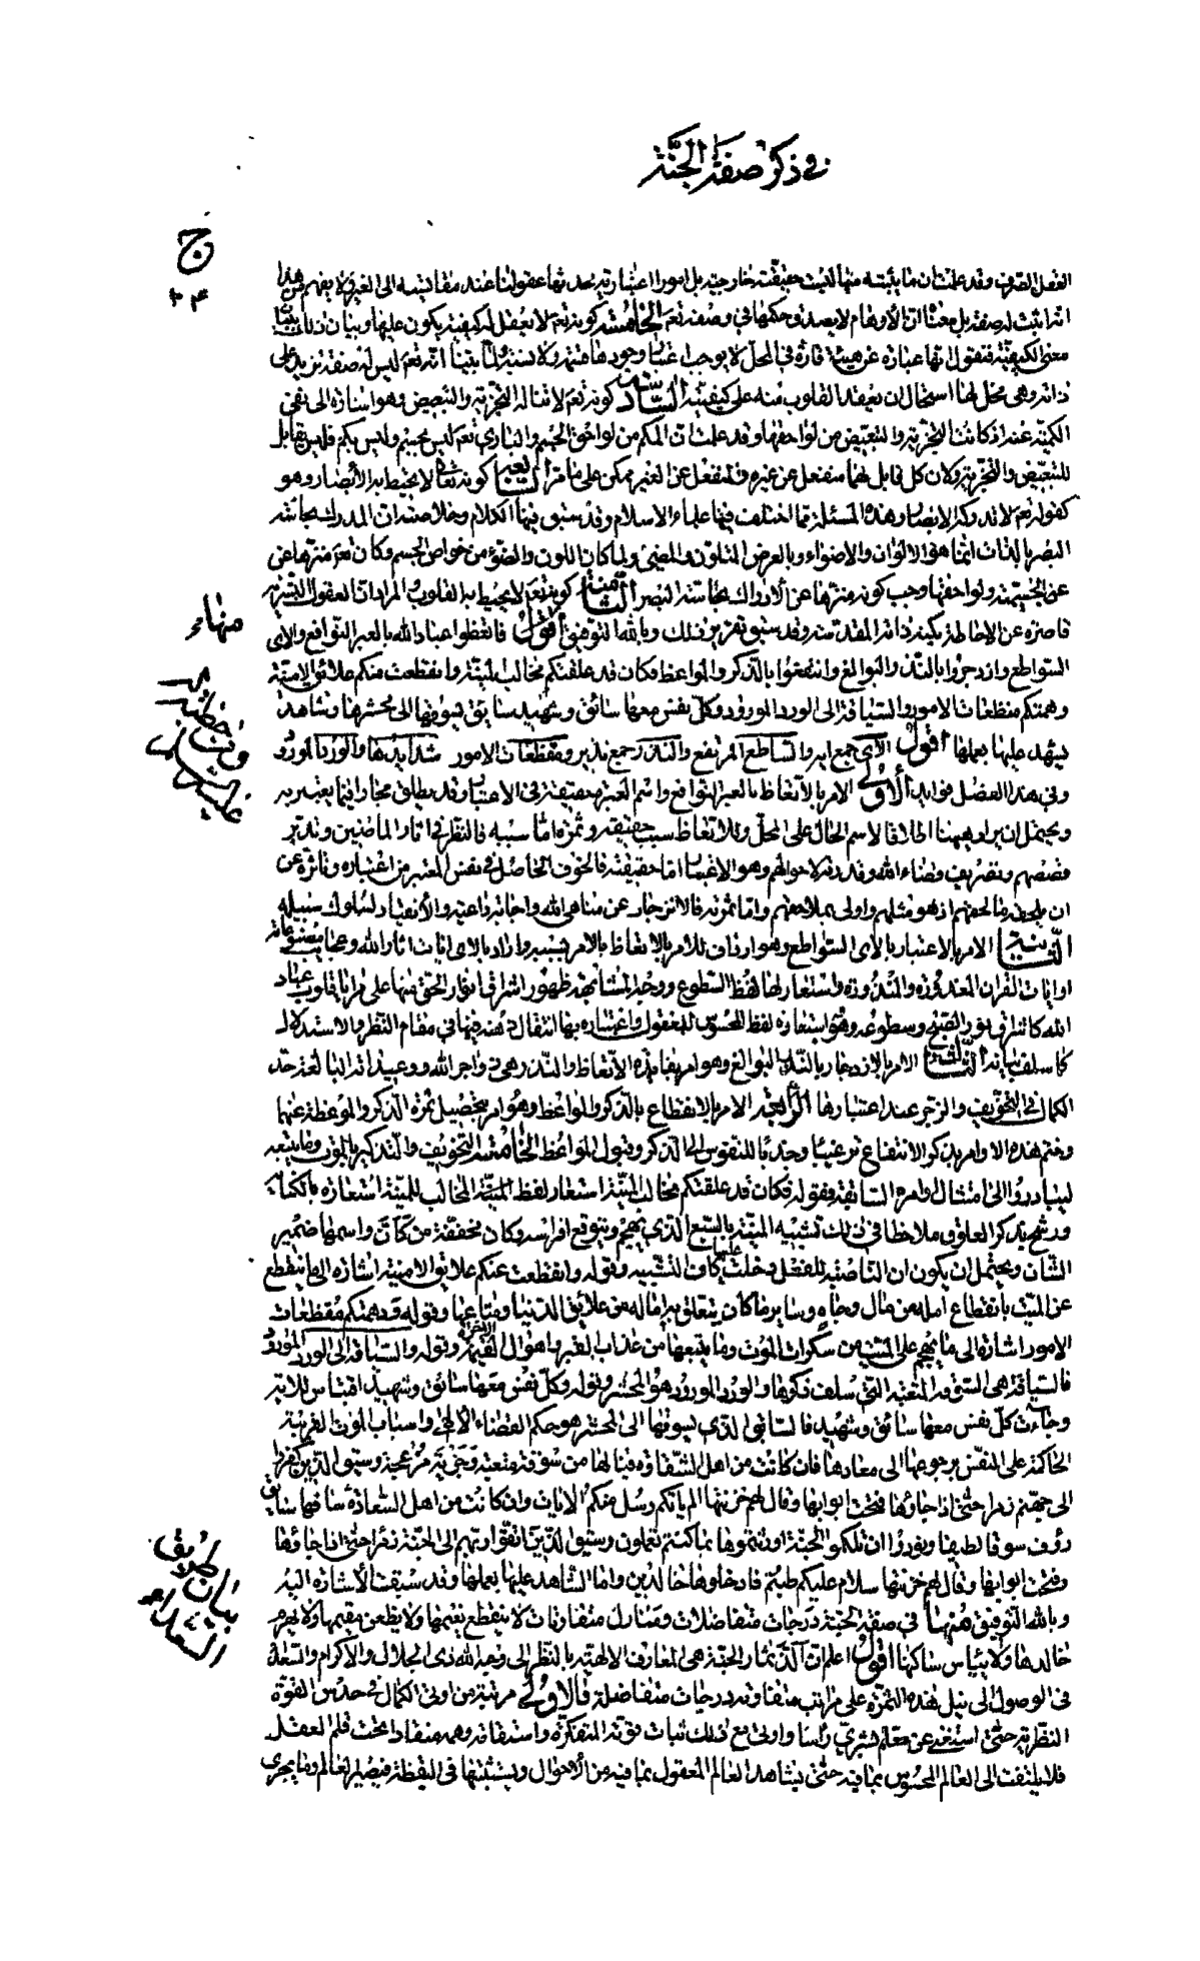 في ذكر صفة الجنة
ج
٢٤
الفصل الصرف وقد علمت ان ما يثبته منها ليست حقيقة خارجية بل امورا اعتبارية يحدثها عقولنا عند مقايسته الى الغير ولا يفهم من هذا
انه اثبت له صفة بل معناه ان الاوهام لا يصدق حكمها في وصفه تعم الخامسة كونه تعم لا يعقل له كيفية يكون عليها وبيان ذلك ببيان
معنى الكيفية فنقول انها عبارة عن هيئة قارة في المحل لا يوجب اعتبار وجودها فيه ولا نسبة ولما بينا انه تعم ليس له صفة تزيد على
ذاته وهي محل لها استحال ان يعقد القلوب منه على كيفية السادسة كونه تعم لا تناله التجزية والتبعيض وهو اشارة الى نفي
الكمية عنه اذ كانت التجزية والتبعيض من لواحقها وقد علمت ان الكم من لواحق الجسم والباري تعم ليس بجسم وليس بكم فليس بقابل
للتبعيض والتجزية ولان كل قابل لهما منفعل عن غيره والمنفعل عن الغير ممكن على ما مر السابعة كونه تعالى لا يحيط به الأبصار وهو
كقوله تعم لا تدركه الابصار وهذه المسئلة مما اختلف فيها علماء الاسلام وقد سبق فيها الكلام وخلاصته ان المدرك بحاسة
البصر بالذات انما هو الالوان والاضواء وبالعرض المتلون والمضيئ ولما كان اللون والضوء من خواص الجسم وكان تعم منزها عن
عن الجسمية ولواحقها وجب كونه منزها عن الادراك بحاسة البصر الثامنة كونه تعم لا يحيط به القلوب المراد ان العقول البشرية
قاصرة عن الاحاطة بكنه ذاته المقدسة وقد سبق تقرير ذلك وبالله التوفيق اقول فاتعظوا عباد الله بالعبر النوافع والاي
منها
السواطع وازدجروا بالنذر البوالغ وانتفعوا بالذكر والمواعظ فكان قد علقتكم مخالب المنية وانقطعت منكم علائق الامنية
ودهمتكم مفظعات الامور والسياقة الى الورد المورود وكل نفس معها سائق وشهيد سائق يسوقها الى محشرها وشاهد
ومن خطبة له عليه السلام
يشهد عليها بعملها اقول الآي جمع اية والساطع المرتفع والنذر جمع نذير ومفظعات الامور شدايدها والورد المورود
وفي هذا الفصل فوايد الأولى الامر بالاتعاظ بالعبر النوافع واسم العبرة حقيقة في الاعتبار وقد يطلق مجازا فيما يعتبر به
ويحتمل ان يراد ههنا اطلاقا لاسم الحال على المحل وللاتعاظ سبب وحقيقة وثمرة اما سببه فالنظر في اثار الماضين وتدبر
قصصهم وتصريف قضاء الله وقدرته لاحوالهم وهو الاعتبار اما حقيقته فالخوف الحاصل في نفس المعتبر من اعتباره وتاثره عن
ان يلحقه ما لحقهم اذ هو مثلهم واولى بملاحقهم واما ثمرته فالانزجار عن مناهي الله واجابة داعيه والأنقياد لسلوك سبيله
الثانية الامر بالاعتبار بالاي السواطع وهو ارداف للامر بالاتعاظ بالامر بسببه واراد بالاي ايات اثار الله وعجايب مصنوعاته
او ايات القران المعذرة والمنذرة واستعار لها لفظ السطوع ووجه المشابهة ظهور اشراق انوار الحق منها على مرايا قلوب عباد
الله كاشراق نور الصبح وسطوعه وهو استعارة لفظ المحسوس للمعقول واعتباره بها انتقال ذهنه فيها في مقام النظر والاستدلال
كما سلف بيانه الثالثة الامر بالازدجار بالنذر البوالغ وهو امر بفايدة الاتعاظ والنذر هي زواجر الله ووعيداته البالغة حد
الكمال في التخويف والزجر عند اعتبارها الرابعة الامر بالانتفاع بالذكر والمواعظ وهو امر بتحصيل ثمرة الذكر والموعظة عنهما
وختم هذه الاوامر بذكر الانتفاع ترغيبا وجذبا للنفوس الى الذكر وقبول المواعظ الخامسة التخويف والتذكير بالموت وما يتبعه
ليبادروا الى امتثال اوامره السابقة فقوله فكان قد علقتكم مخالب المنية استعار لفظ المخالب للمنية استعارة بالكناية
ورشح بذكر العلوق ملاحظا في ذلك تشبيه المنية بالسبع الذي يهجم ويتوقع افتراسه وكان مخففة من كأن واسمها ضمير
الشان ويحتمل ان يكون ان الناصبة للفعل دخلت عليها كاف التشبيه وقوله وانقطعت عنكم علائق الامنية اشارة الى ما ينقطع
عن الميت بانقطاع امله من مال وجاه وساير ما كان يتعلق به اماله من علايق الدنيا ومتاعها وقوله ودهمتكم مفظعات
الامور اشارة الى ما يهجم على الميت من سكرات الموت وما يتبعها من عذاب القبر واهوال القيمة وقوله والسياقة الى الورد المورود
فالسياقة هي السوقة المتعبة التي سلف ذكرها والورد المورود هو المحشر وقوله وكل نفس معها سائق وشهيد اقتباس للاية
وجاءت كل نفس معها سائق وشهيد فالسائق الذي يسوقها الى المحشر هو حكم القضاء الالهي واسباب الموت القريبة
الحاكمة على النفس برجوعها الى معادها فان كانت من اهل الشقاوة فيا لها من سوقة متعبة وجذبة مزعجة وسيق الذين كفروا
الى جهنم زمرا حتى اذا جاؤها فتحت ابوابها وقال لهم خزنتها الم ياتكم رسل منكم الايات وان كانت من اهل السعادة ساقها سائق
رؤف سوقا لطيفا ونودوا ان تلكم الجنة اورثتموها بما كنتم تعملون وسيق الذين اتقوا ربهم الى الجنة زمرا حتى اذا جاؤها
بيان طرائق السعداء
وفتحت ابوابها وقال لهم خزنتها سلام عليكم طبتم فادخلوها خالدين واما الشاهد عليها بعملها وقد سبقت الأشارة اليه
وبالله التوفيق منها في صفة الجنة درجات متفاضلات ومنازل متفاوتات لا ينقطع نعيمها ولا يظعن مقيمها ولا يهرم
خالدها ولا يبأس ساكنها اقول اعلم ان الذ ثمار الجنة هي المعارف الالهية بالنظر الى وجه الله ذى الجلال والاكرام والسعداء
في الوصول الى نيل هذه الثمرة على مراتب متفاوتة ودرجات متفاضلة فالاولى مرتبة من اوتى الكمال في حدس القوة
النظرية حتى استغنى عن معلم بشري رأسا واوتى مع ذلك ثبات قوته المتفكرة واستقامة وهمه منقادا تحت قلم العقل
فلا يلتفت الى العالم المحسوس بما فيه حتى يشاهد العالم المعقول بما فيه من الأحوال ويستثبتها في اليقظة فيصير العالم وما يجري